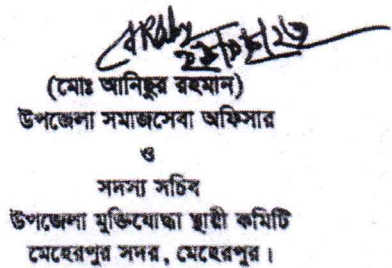 (মোঃ আনিছুর রহমান)
উপজেলা সমাজসেবা অফিসার
ও
সদস্য সচিব
উপজেলা মুক্তিযোদ্ধা স্থায়ী কমিটি
মেহেরপুর সদর, মেহেরপুর।